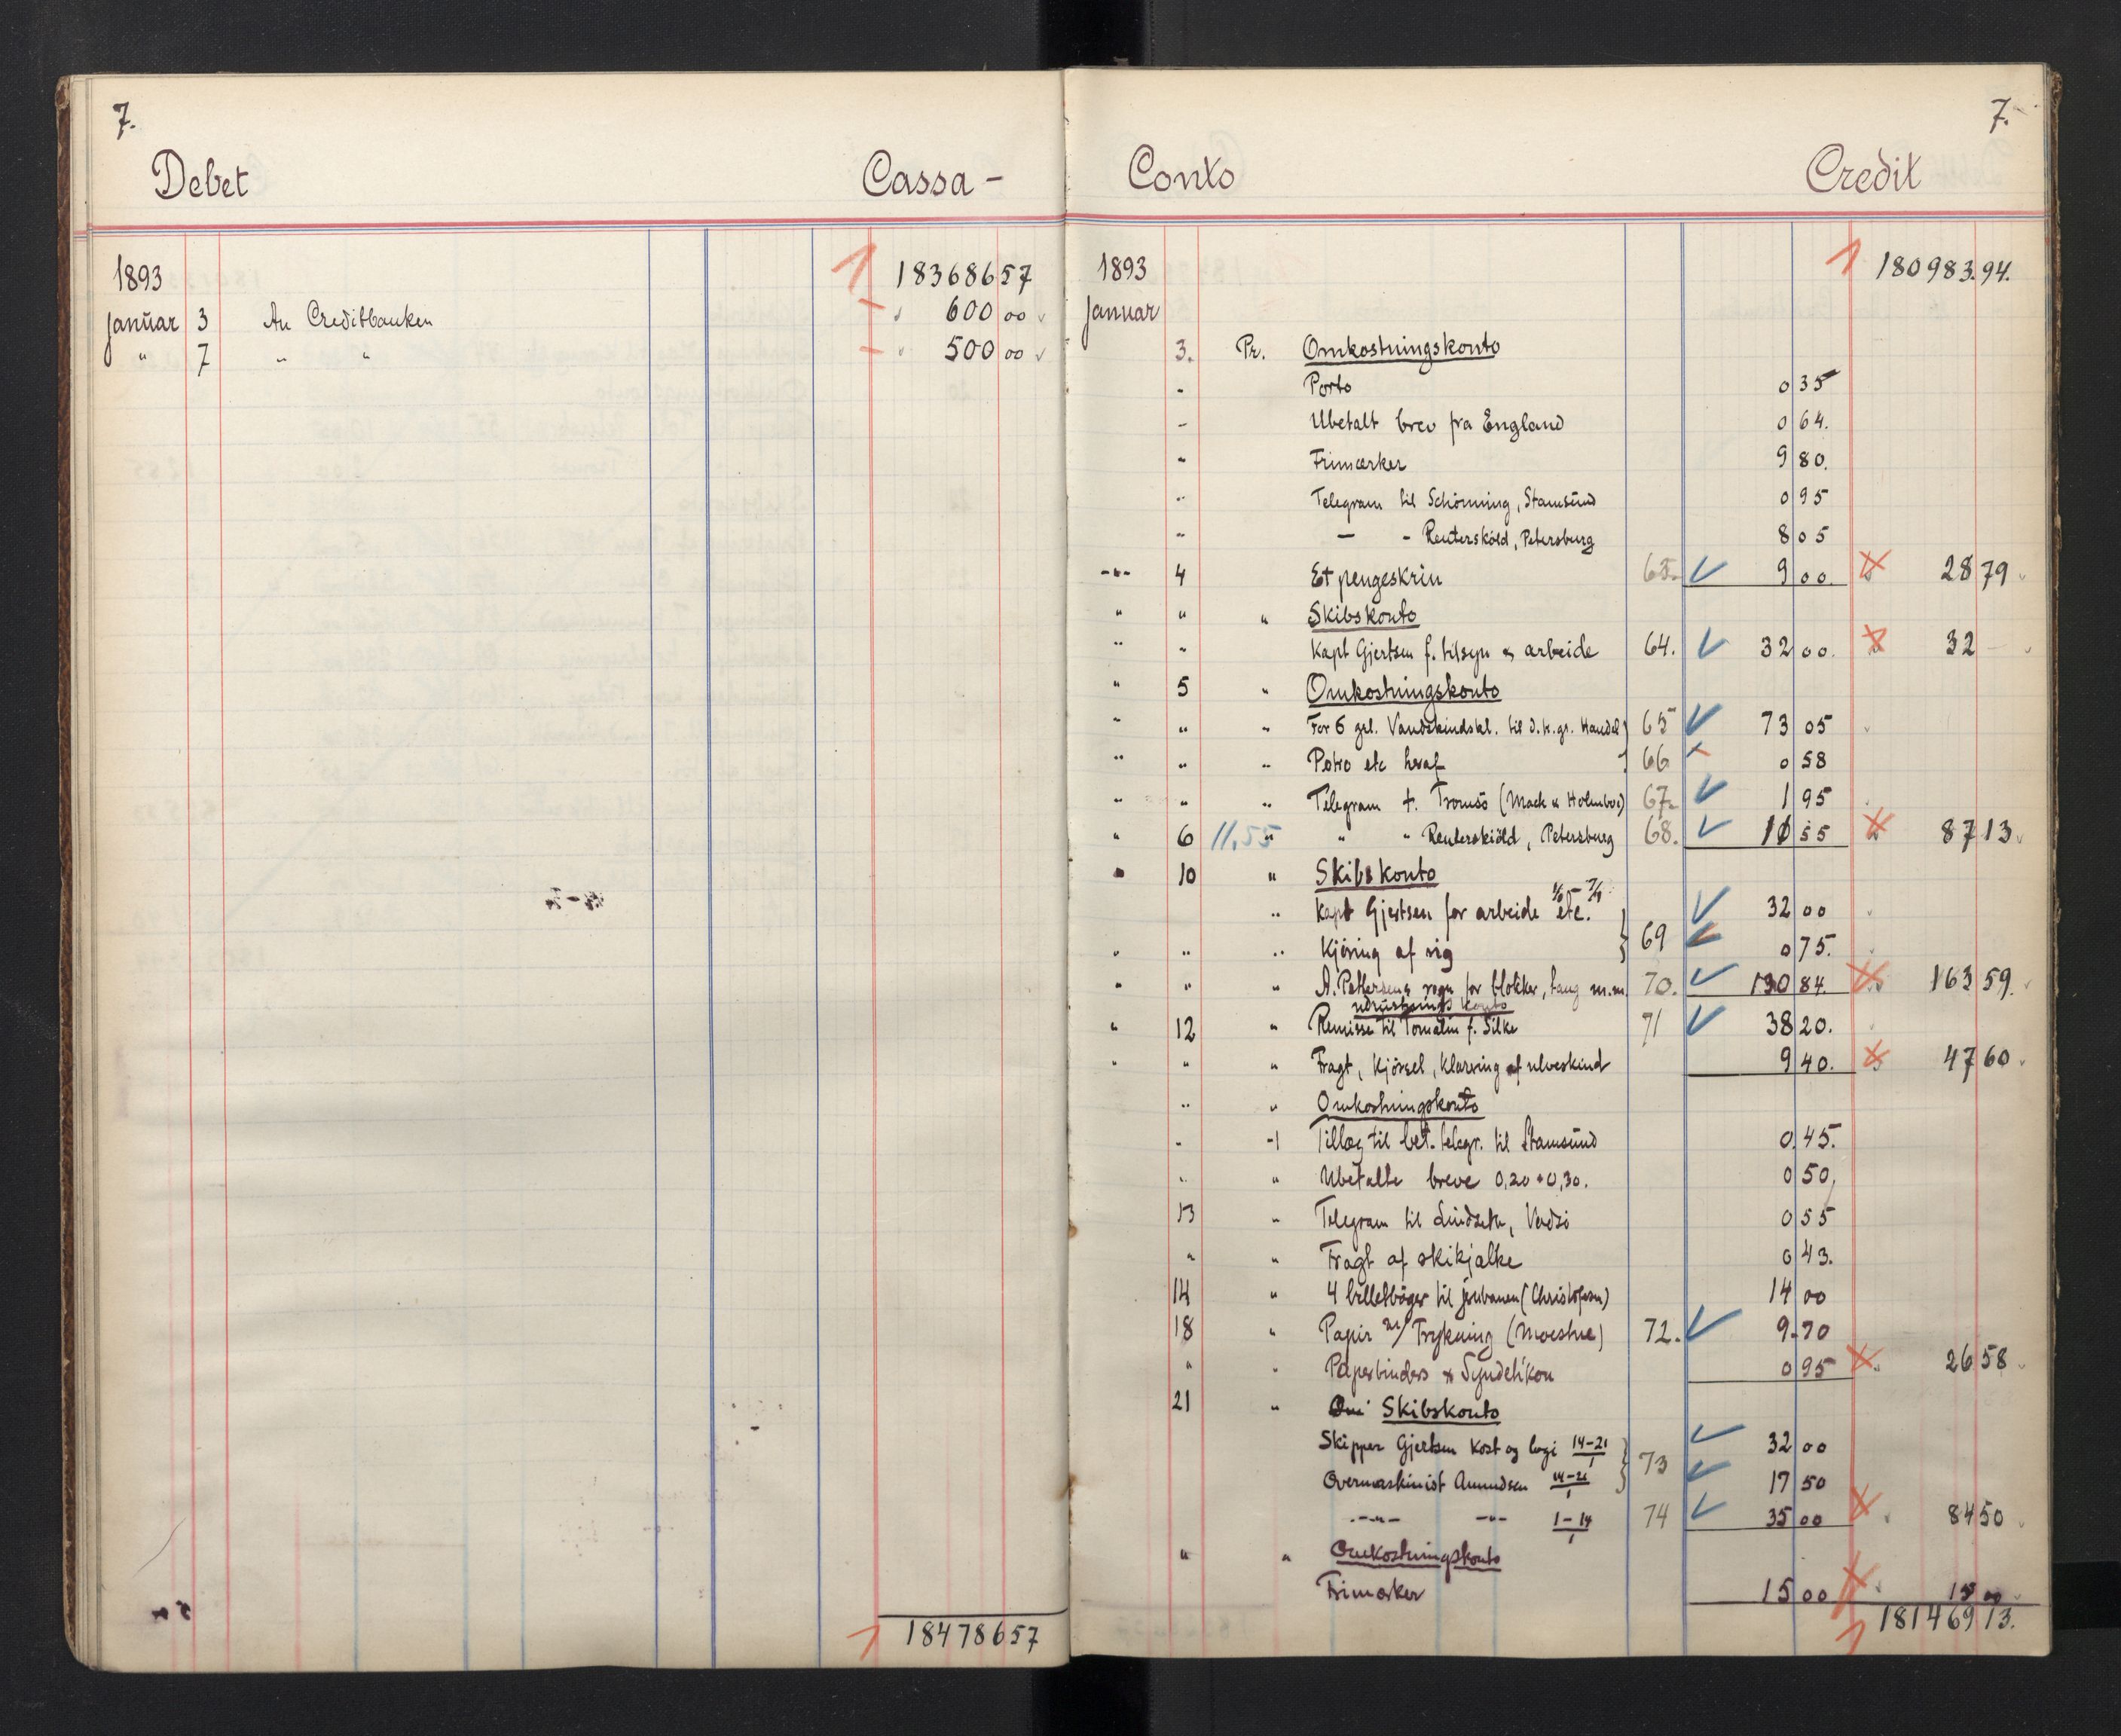 7.
Debet Cassa -
1893 183686 57
Januar 3 An Creditbanken 600 00
" 7 " " 500 00
184786 57
7.
Conto Credit
1893 180983.94.
Januar
3. Pr. Omkostningskonto
Porto 0 35
Ubetalt brev fra England 0 64.
Frimærker 9 80.
Telegram til Schönning, Stamsund 0 95
— - Reutersköld, Petersburg 8 05
-"- 4 Et pengeskrin 63. 9 00. 28 79
" " " Skibskonto
" " Kapt Gjertsen f. tilsyn & arbeide 64. 32 00. 32 —
" 5 " Omkostningskonto
" " " For 6 grl. Vandskindskl. til d. k. gr. Handel 65 73 05
" " " Potro etc heraf 66 0 58
" " " Telegram t. Tromsö (Mack & Holmboe) 67. 1 95
" 6 11,55 " " " Reuterskiöld, Petersburg 68. 11 55 87 13
" 10 " Skibskonto
" Kapt Gjertsen for arbeide etc. 1/6 - 7/1 32 00
" " " Kjöring af rig 69 0 75.
" " " A. Pettersens regn for blokker, taug m.m. 70. 130 84. 163 59.
udrustnings konto
" 12 " Remisse til Tomalin f. Silke 71 38 20.
" " " Fragt, Kjörsel, Klarering af ulveskind 9 40. 47 60
" " Omkostningskonto
" -" Tillæg til bet. telegr. til Stamsund 0.45.
" " Ubetalte breve 0,20 + 0,30. 0 50.
13 " Telegram til Lindseth, Vadsö 0 55
" " Fragt af skikjælke 0 43.
14 " 4 billetböger til jernbanen (Christofersen) 14 00
18 " Papir m/ Trykning (Moestue) 72. 9.70
" " Paperbinders & Syndetikon 0 95 26 58
21 " Skibskonto
Skipper Gjertsen Kost og logi 14-21/1 32 00
Overmaskinist Amundsen 14-21/1 73 17 50
-"- -"- 1-14/1 74 35 00 84 50
" " Omkostningskonto
Frimærker 15 00 15 00
181469 13.